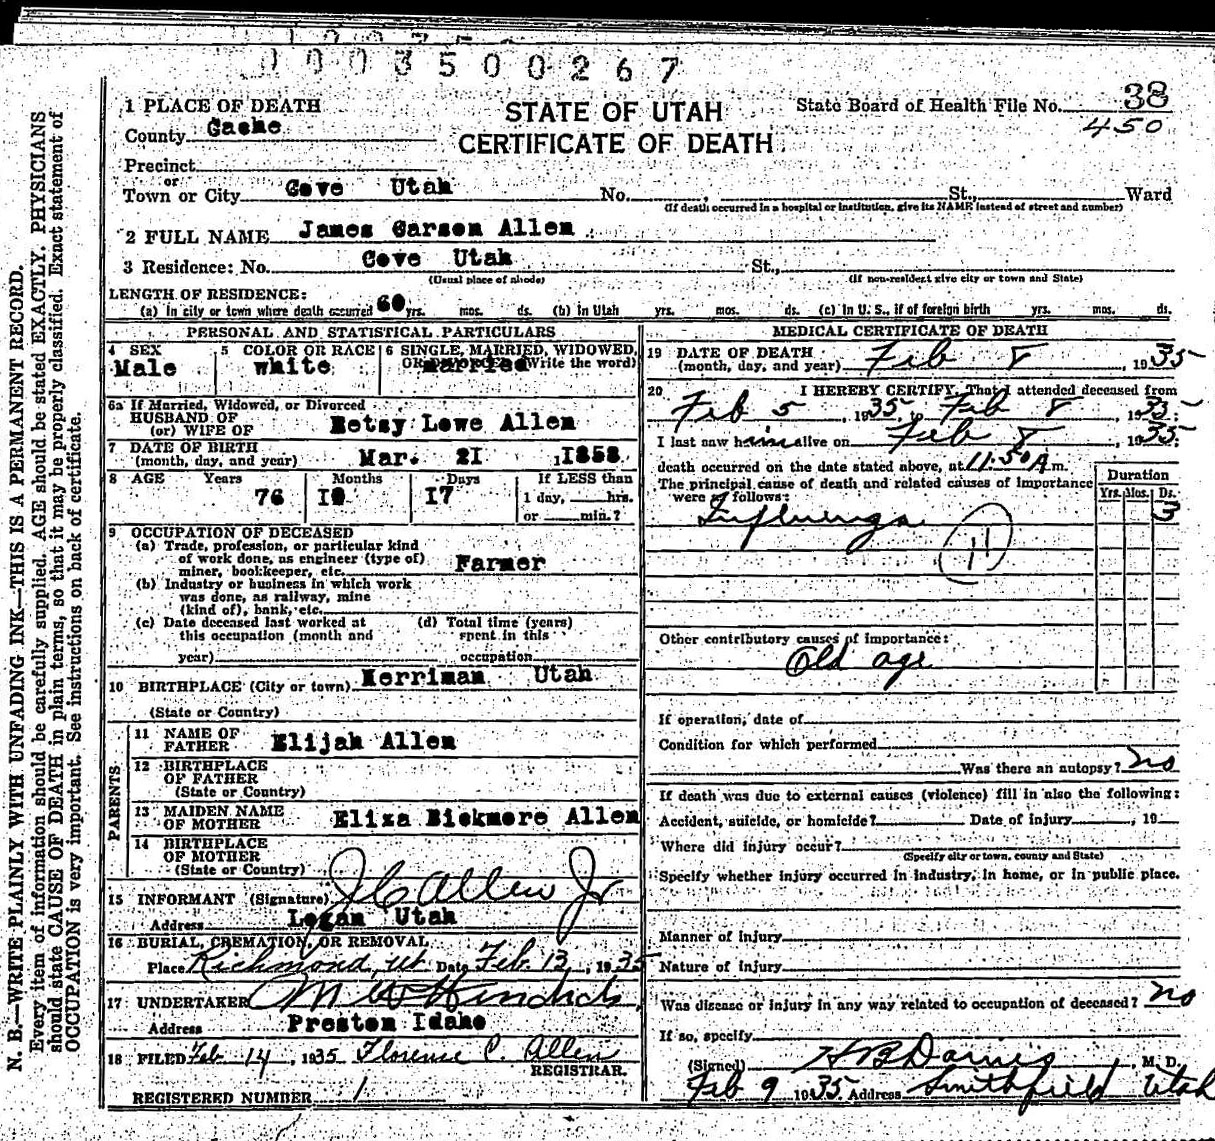 0003500267
1 PLACE OF DEATH
County Cache
STATE OF UTAH
CERTIFICATE OF DEATH
State Board of Health File No. 38
450
Precinct
or
Town or City Cove Utah No. , St., Ward
(If death occurred in a hospital or institution, give its NAME instead of street and number)
2 FULL NAME James Carson Allen
3 Residence: No. Cove Utah St.,
(Usual place of abode) (If non-resident give city or town and State)
LENGTH OF RESIDENCE:
(a) In city or town where death occurred 60 yrs. mos. ds. (b) in Utah yrs. mos. ds. (c) In U. S., if of foreign birth yrs. mos. ds.
PERSONAL AND STATISTICAL PARTICULARS
4 SEX
Male
5 COLOR OR RACE
white
6 SINGLE, MARRIED, WIDOWED,
OR DIVORCED (Write the word)
married
6a If Married, Widowed, or Divorced
HUSBAND OF
(or) WIFE OF Betsy Lowe Allen
7 DATE OF BIRTH
(month, day, and year) Mar. 21 , 1858
8 AGE Years Months Days If LESS than
76 10 17 1 day, hrs.
or min.?
9 OCCUPATION OF DECEASED
(a) Trade, profession, or particular kind
of work done, as engineer (type of)
miner, bookkeeper, etc. Farmer
(b) Industry or business in which work
was done, as railway, mine
(kind of), bank, etc.
(c) Date deceased last worked at
this occupation (month and
year)
(d) Total time (years)
spent in this
occupation
10 BIRTHPLACE (City or town) Herriman Utah
(State or Country)
PARENTS
11 NAME OF
FATHER Elijah Allen
12 BIRTHPLACE
OF FATHER
(State or Country)
13 MAIDEN NAME
OF MOTHER Eliza Bickmore Allen
14 BIRTHPLACE
OF MOTHER
(State or Country)
15 INFORMANT (Signature) J C Allen Jr
Address Logan Utah
16 BURIAL, CREMATION, OR REMOVAL
Place Richmond, Ut. Date Feb. 13, 1935
17 UNDERTAKER M W Hendricks
Address Preston Idaho
18 FILED Feb 14, 1935 Florence C. Allen
REGISTRAR.
REGISTERED NUMBER 1
MEDICAL CERTIFICATE OF DEATH
19 DATE OF DEATH
(month, day, and year) Feb 8, 1935
20 I HEREBY CERTIFY, That I attended deceased from
Feb 5, 1935 to Feb 8, 1935
I last saw him alive on Feb 8, 1935
death occurred on the date stated above, at 11:50 A.m.
The principal cause of death and related causes of importance
were as follows:
Duration
Yrs. Mos. Ds.
Influenza 3
11
Other contributory causes of importance:
Old age
If operation, date of
Condition for which performed
Was there an autopsy? no
If death was due to external causes (violence) fill in also the following:
Accident, suicide, or homicide? Date of injury , 19
Where did injury occur?
(Specify city or town, county and State)
Specify whether injury occurred in industry, in home, or in public place.
Manner of injury
Nature of injury
Was disease or injury in any way related to occupation of deceased? no
If so, specify
(Signed) , M. D.
Feb 9 1935 Address Smithfield Utah
N. B.—WRITE PLAINLY WITH UNFADING INK—THIS IS A PERMANENT RECORD.
Every item of information should be carefully supplied. AGE should be stated EXACTLY. PHYSICIANS
should state CAUSE OF DEATH in plain terms, so that it may be properly classified. Exact statement of
OCCUPATION is very important. See instructions on back of certificate.